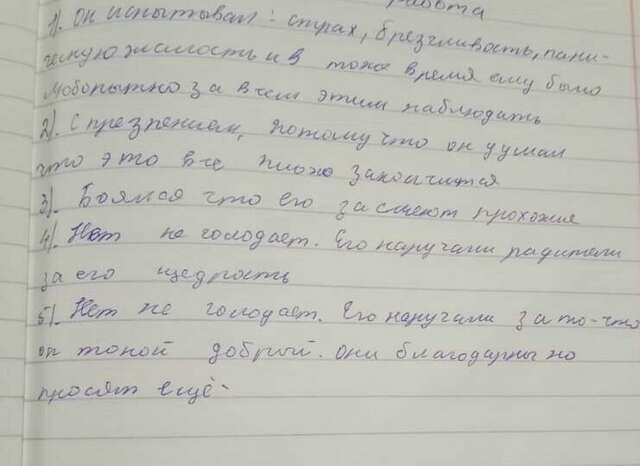 работа
1). Он испытывал: страх, брезгливость, пани-
ческую жалость и в тоже время ему было
любопытно за всем этим наблюдать
2). С презрением, потому что он думал
что это все плохо закончится
3). Боялся что его засмеют прохожие
4). Нет не голодает. Его наругали радители
за его щедрость
5). Нет не голодает. Его наругали за то-что
он токой доброй. они благодарны но
просят ещё.